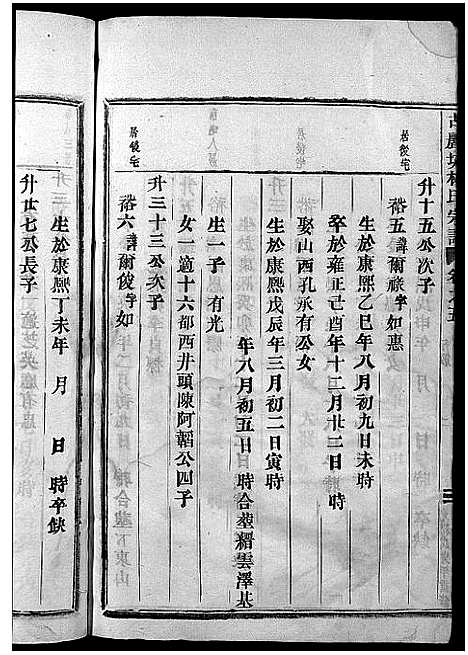 宗譜
升十五公次子
居後宅
裕五諱爾祿字如惠
生於康熙乙巳年八月初九日未時
卒於雍正己酉年十二月廿二日 時
娶山西孔承有公女
生於康熙戊辰年三月初二日寅時
年八月初五日 時合塟縉雲澤基
生一子 有光
女一適十六都西井頭陳阿韜公四子
升三十三公次子
居後宅
裕六諱爾俊字如
生於康熙丁未年 月 日 時卒缺
升廿七公長子